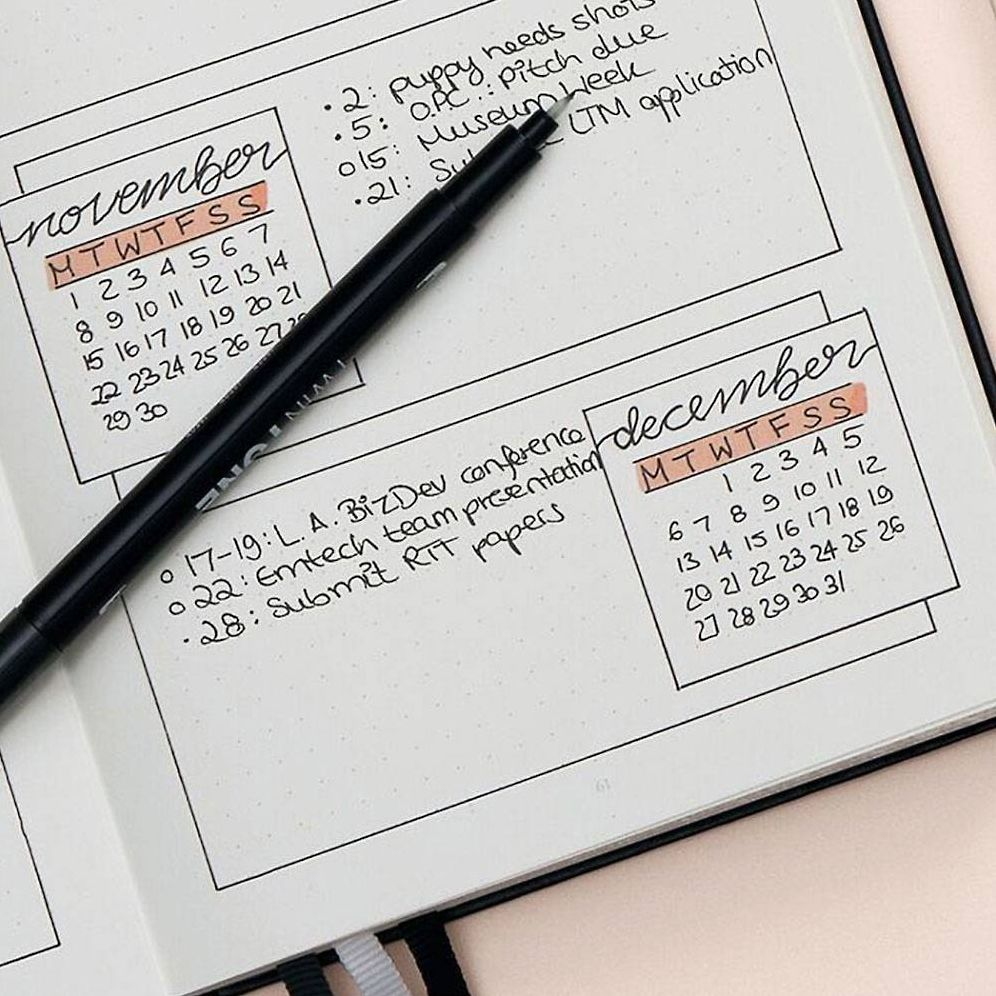 • 2: puppy needs shots
• 5: OPC: pitch due
o 15: Museum Week
• 21: LTM application
november
M T W T F S S
1 2 3 4 5 6 7
8 9 10 11 12 13 14
15 16 17 18 19 20 21
22 23 24 25 26 27 28
29 30
december
M T W T F S S
1 2 3 4 5
6 7 8 9 10 11 12
13 14 15 16 17 18 19
20 21 22 23 24 25 26
27 28 29 30 31
o 17-19: L.A. BizDev conference
o 22: Emtech team presentation
• 28: Submit RIT papers
TWIN TONE
61